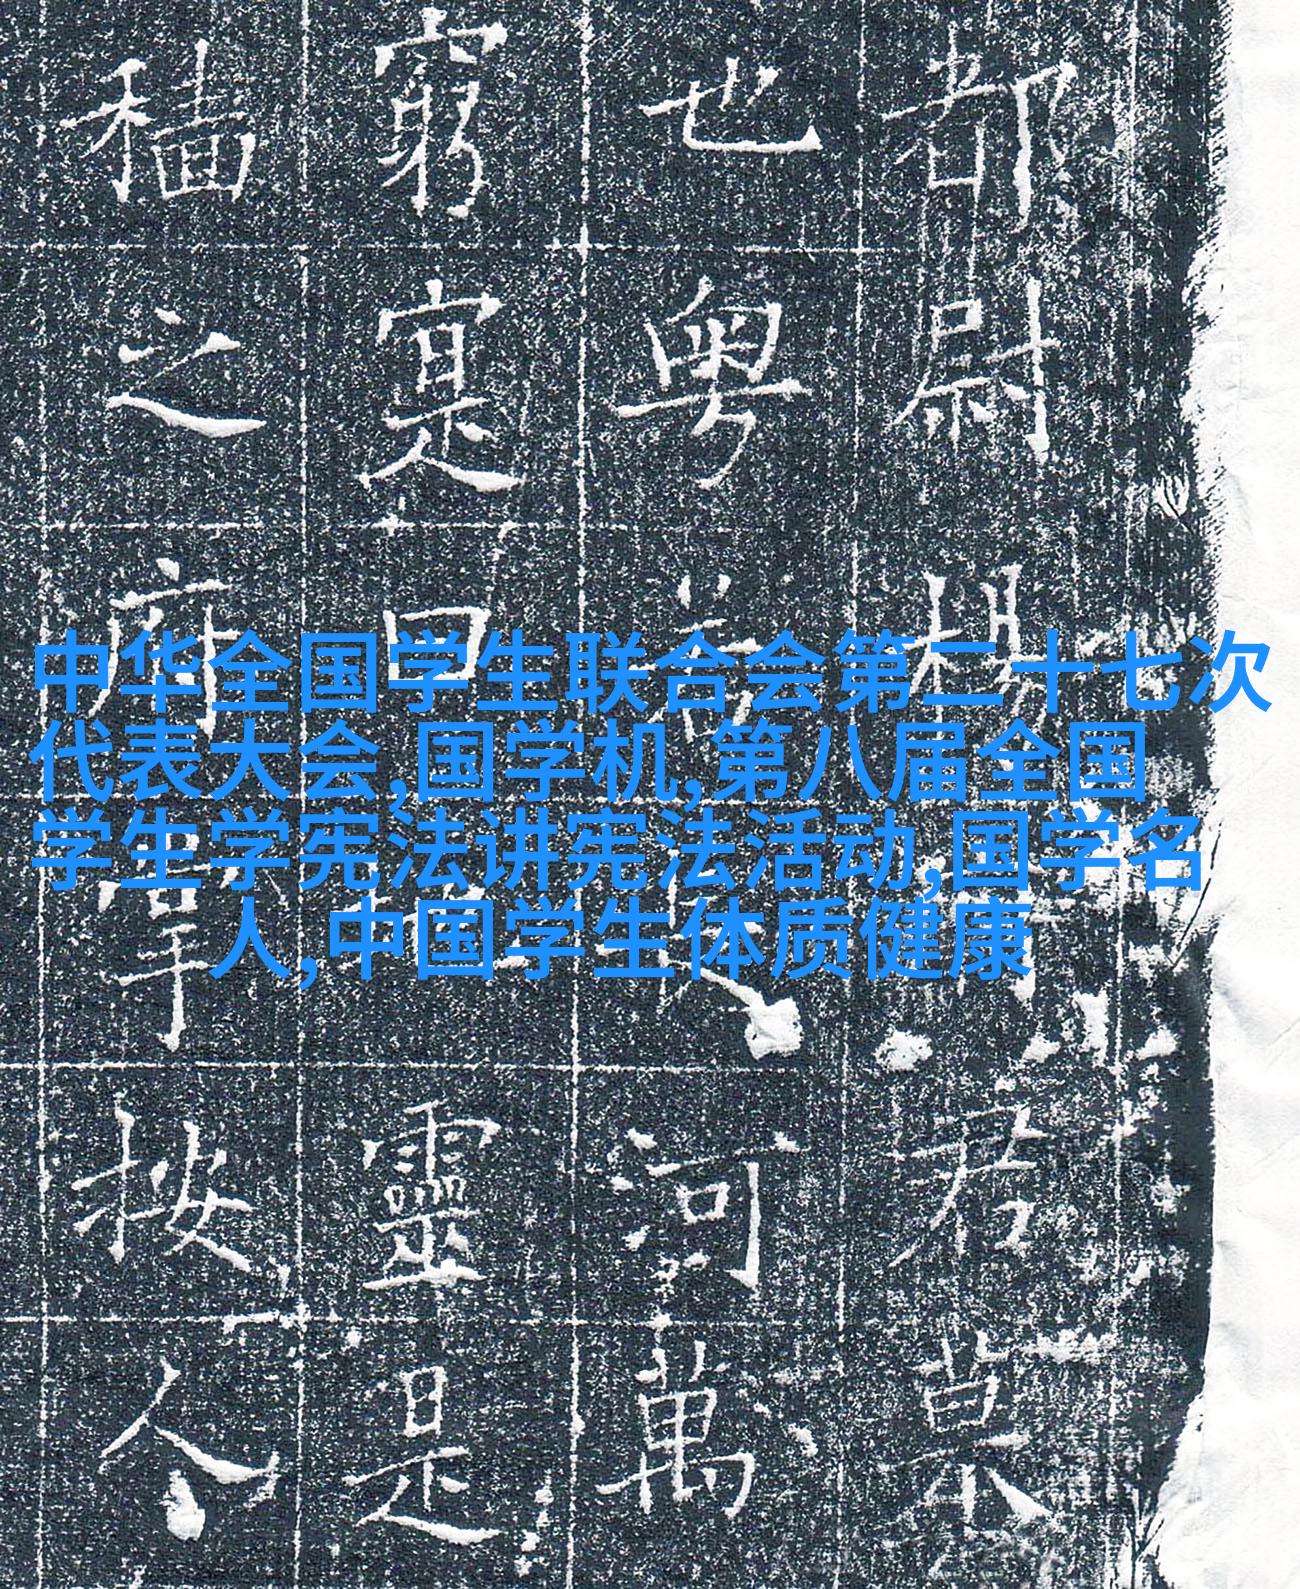 中华全国学生联合会第二十七次
代表大会,国学机,第八届全国
学生学宪法讲宪法活动,国学名
人,中国学生体质健康
都尉楊君
也粤河萬
窮寔曰靈是
穡之府按人